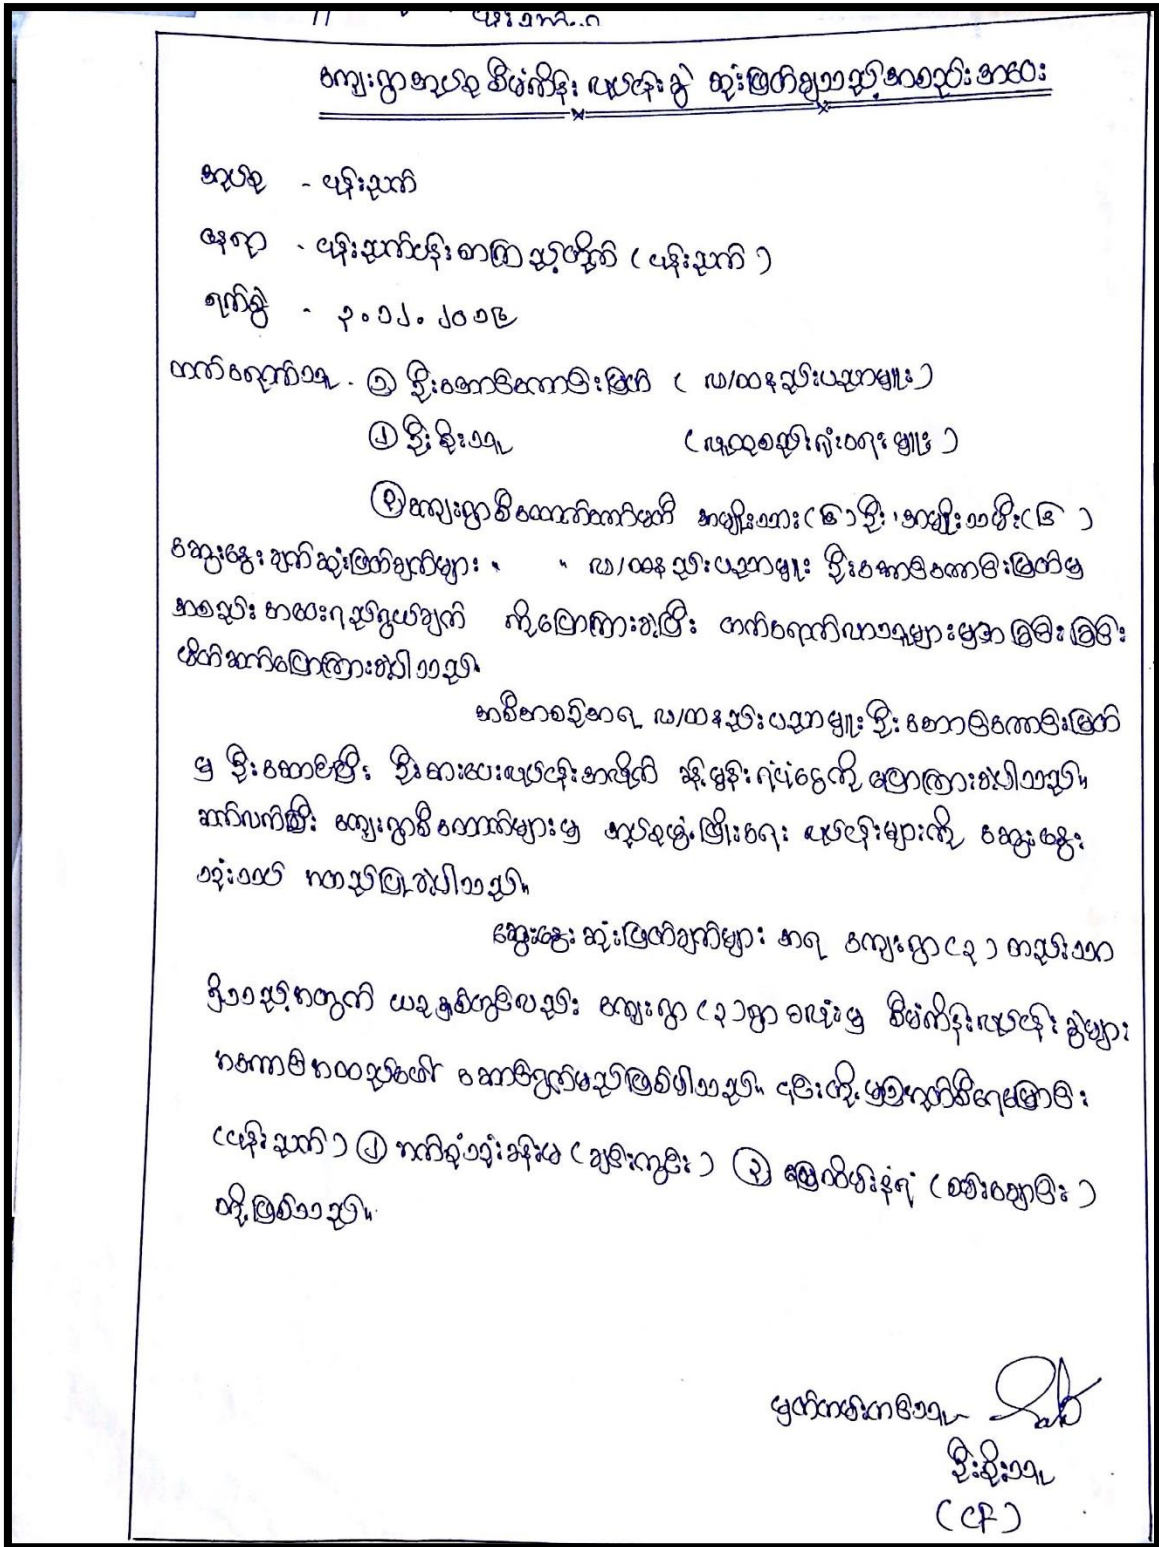 ကျေးရွာအုပ်စု စီမံကိန်း လုပ်ငန်းခွဲ ဆုံးဖြတ်ချသည့်အစည်းအဝေး
အုပ်စု - ပန်းညက်
နေရာ - ပန်းညက်ပန်း စာကြည့်တိုက် (ပန်းညက်)
ရက်စွဲ - ၃.၁၂.၂၀၁၆
တက်ရောက်သူ - ① ဦးအောင်ကောင်းမြတ် (လ/ထနည်းပညာမှူး)
② ဦးစိုးသူ (လူထုစည်းရုံးရေးမှူး)
③ ကျေးရွာစီထောက်ကော်မတီ အမျိုးသား(၆)ဦး၊ အမျိုးသမီး(၆)
ဆွေးနွေးချက်ဆုံးဖြတ်ချက်များ။ ။ လ/ထနည်းပညာမှူး ဦးအောင်ကောင်းမြတ်မှ
အစည်းအဝေးရည်ရွယ်ချက် ကိုပြောကြားခဲ့ပြီး တက်ရောက်လာသူများမှအခြင်းခြင်း
မိတ်ဆက်ပြောကြားခဲ့ပါသည်။
အစီအစဉ်အရ လ/ထနည်းပညာမှူး ဦးအောင်ကောင်းမြတ်
မှ ဦးဆောင်ပြီး ဦးစားပေးလုပ်ငန်းအလိုက် ခန့်မှန်းရံပုံငွေကို ပြောကြားခဲ့ပါသည်။
ဆက်လက်ပြီး ကျေးရွာစီထောက်များမှ အုပ်စုဖွံ့ဖြိုးရေး လုပ်ငန်းများကို ဆွေးနွေး
သုံးသပ် အတည်ပြုခဲ့ပါသည်။
ဆွေးနွေးဆုံးဖြတ်ချက်များ အရ ကျေးရွာ(၃)တည်းသာ
ရှိသည့်အတွက် ယခုနှစ်တွင်လည်း ကျေးရွာ(၃)ရွာ စလုံးမှ စီမံကိန်းလုပ်ငန်းခွဲများ
အကောင်အထည်ဖော် ဆောင်ရွက်မည်ဖြစ်ပါသည်။ ၎င်းတို့မှာ
(ပန်းညက်) ② ဘက်စုံသုံးခန်းမ (ချင်းကွင်း) ③ မြေထိမ်းနံရံ (စမ်းချောင်း)
တို့ဖြစ်သည်။
မှတ်တမ်းတင်သူ
ဦးစိုးသူ
(CF)